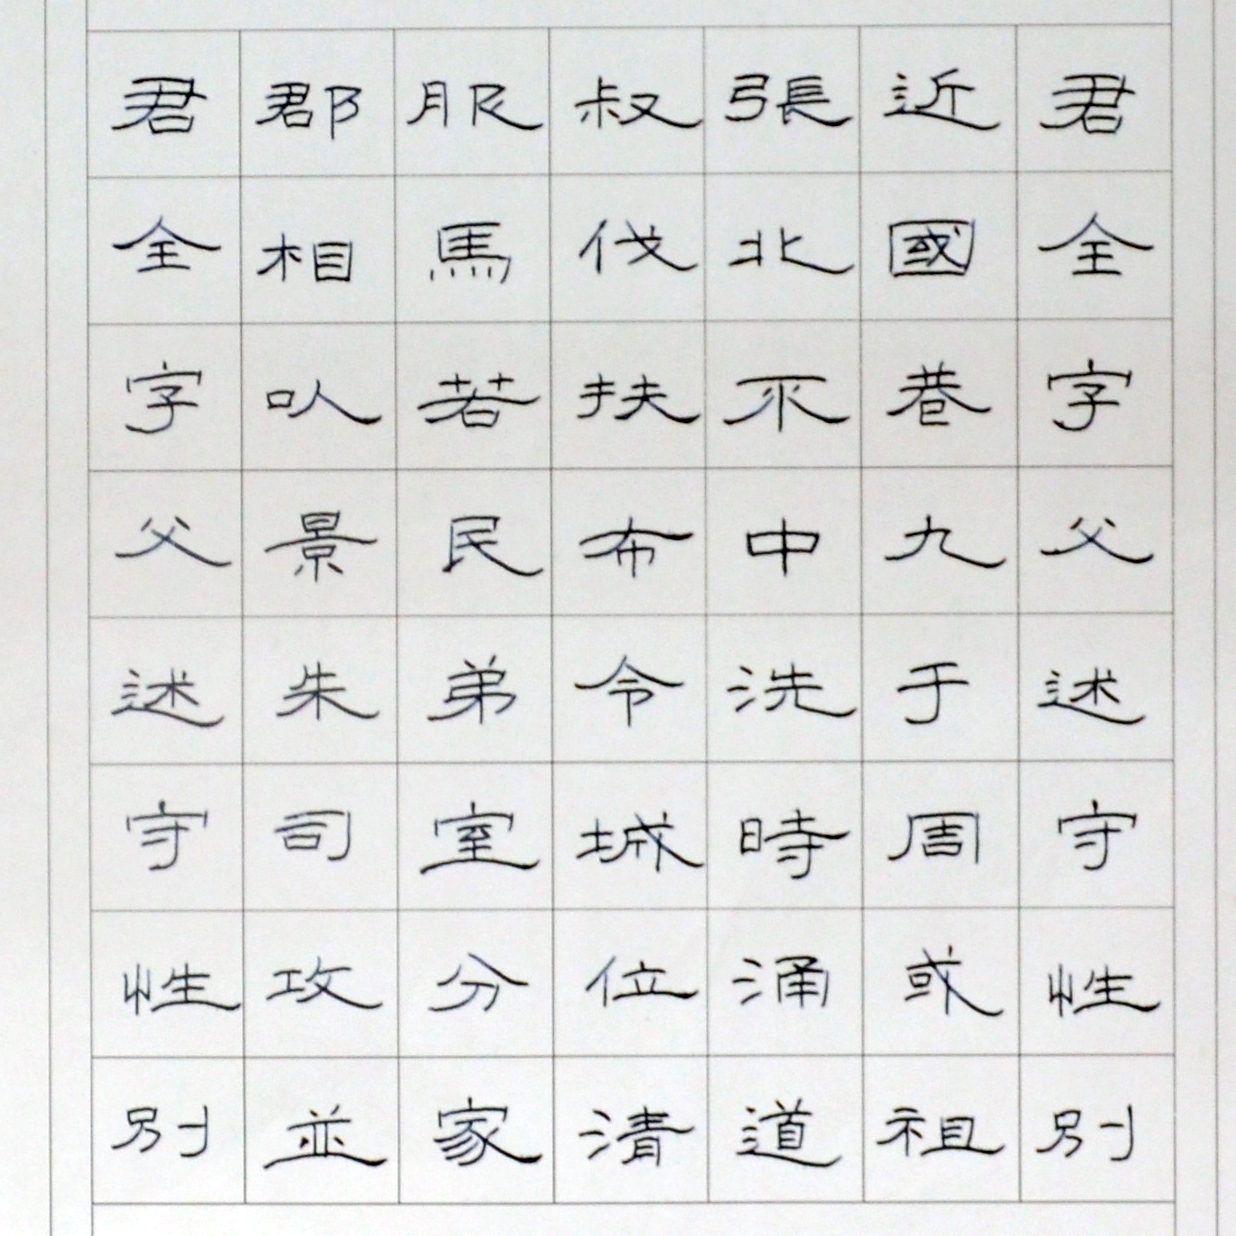 君全字父述守性別
近國巷九于周或祖
張北不中洗時涌道
叔伐扶布令城位清
服馬若民弟室分家
郡相以景朱司攻並
君全字父述守性別